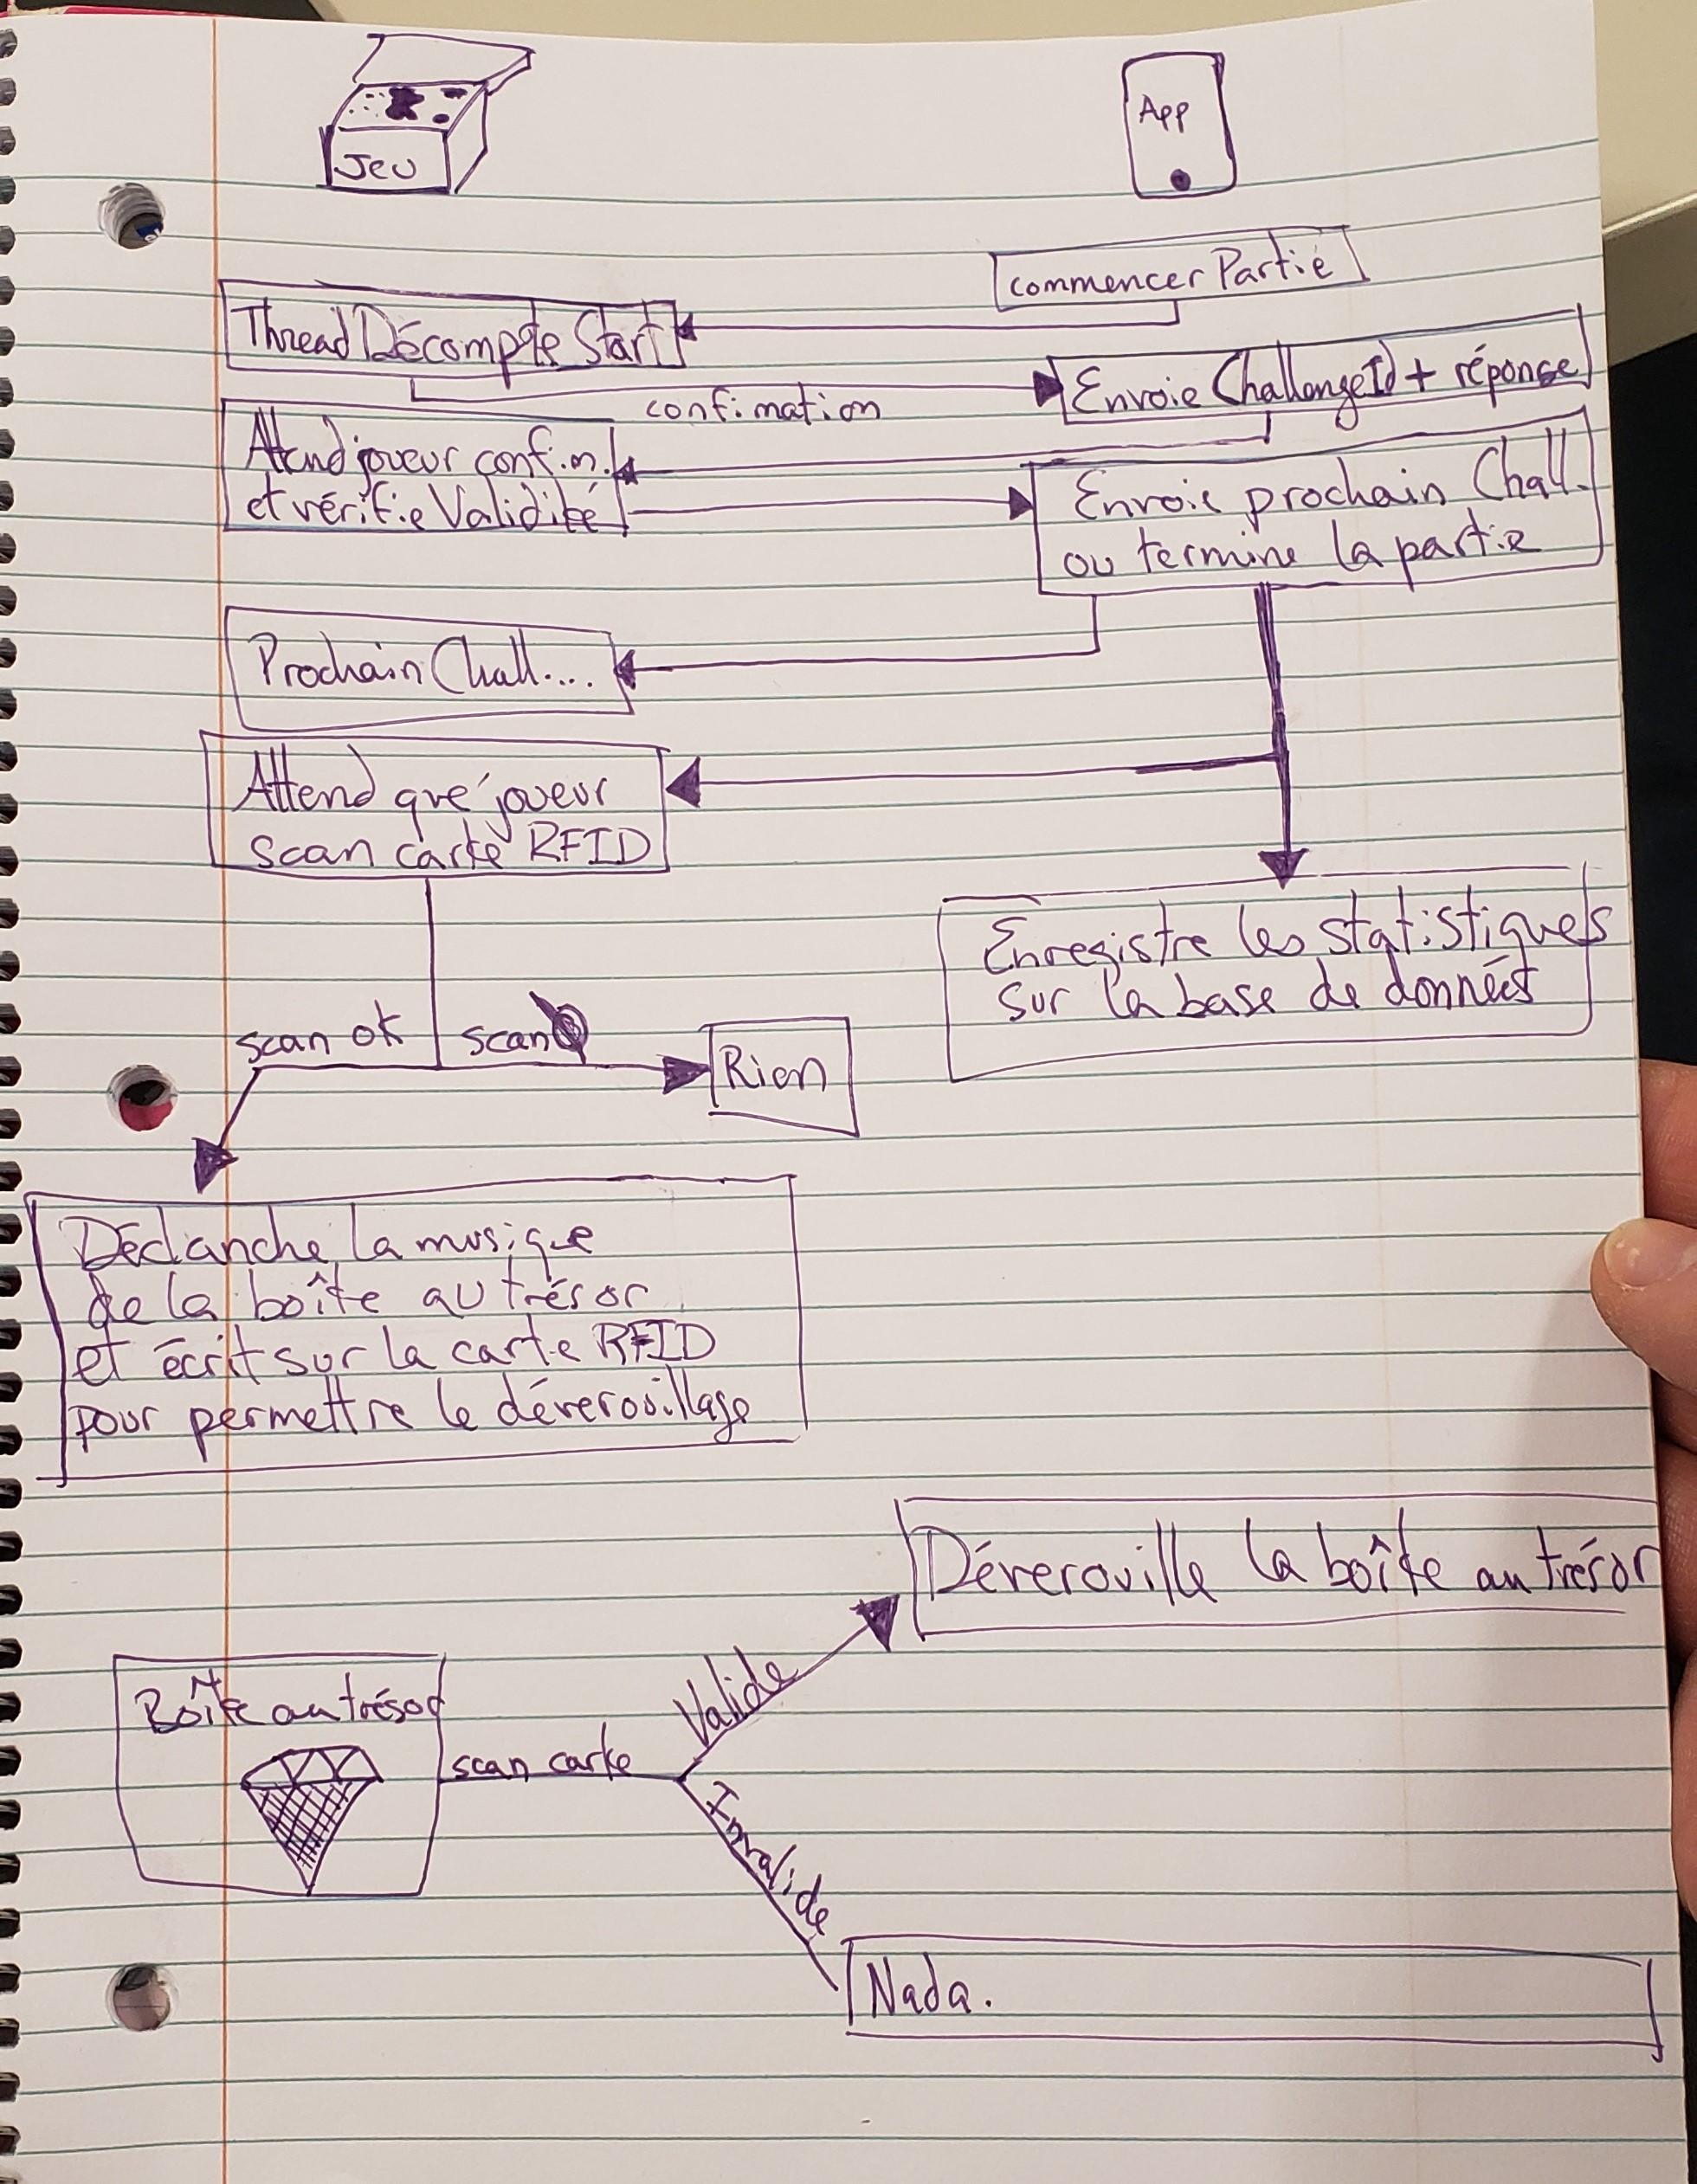 Jeu
App
commencer Partie
Thread Décompte Start
confimation
Envoie ChallengeId + réponse
Attend joueur confirm.
et vérifie Validité
Envoie prochain Chall.
ou termine la partie
Prochain Chall....
Attend que joueur
scan carte RFID
Enregistre les statistiques
sur la base de donnéés
scan ok
scan
Rien
Déclanche la musique
de la boîte au trésor
et écrit sur la carte RFID
pour permettre le déverouillage
Déverouille la boîte au trésor
Boîte au trésor
Valide
scan carte
Invalide
Nada.